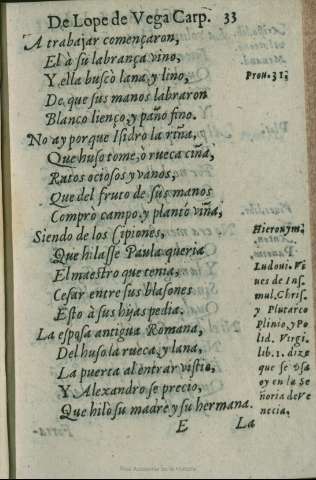 De Lope de Vega Carp. 33
A trabajar començaron,
El à su labrança vino,
Y ella buscò lana, y lino,
De que sus manos labraron
Blanco lienço, y paño fino.
No ay porque Isidro la riña,
Que huso tome, ò rueca ciña,
Ratos ociosos y vanos,
Que del fruto de sus manos
Comprò campo, y plantò viña,
Siendo de los Cipiones,
Que hilasse Paula queria
El maestro que tenia,
Cesar entre sus blasones
Esto à sus hijas pedia.
La esposa antigua Romana,
Del huso la rueca, y lana,
La puerta al entrar vistio,
Y Alexandro se precio,
Que hilò su madre y su hermana.
E La
Prou. 31.
Hieronym.
Ludoui. Vi
ues de Ins.
mul. Chris.
y Plutarco
Plinio, y Po
lid. Virgi.
lib. 1. dize
que se vsa
oy en la Se
ñoria de Ve
necia.
Real Academia de la Historia